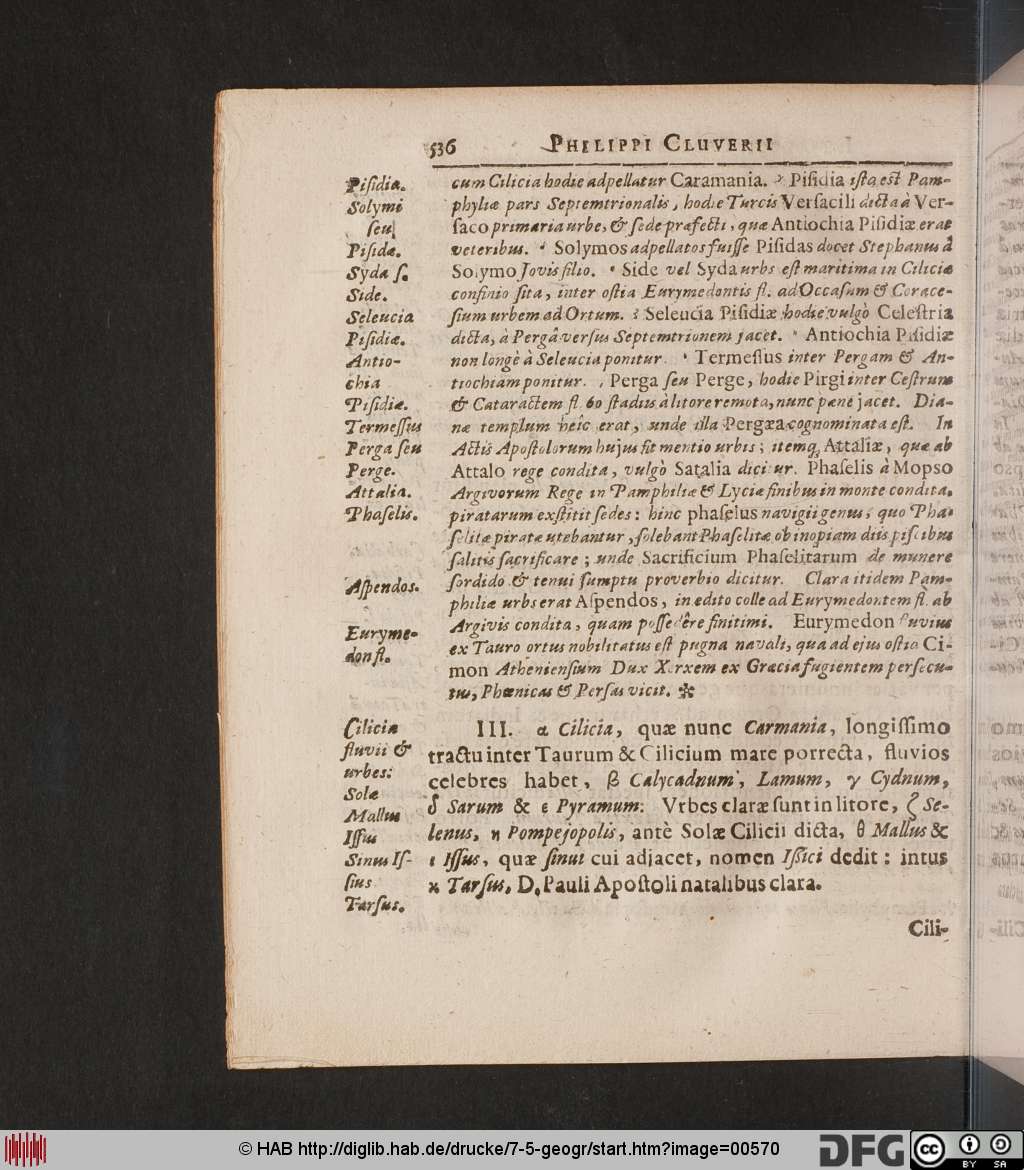 536 PHILIPPI CLUVERII
Piſidia.
Solymi
ſeu
Piſidæ.
Syda ſ.
Side.
Seleucia
Piſidiæ.
Antio-
chia
Piſidiæ.
Termeſſus
Perga ſeu
Perge.
Attalia.
Phaſelis.
Aſpendos.
Euryme-
don fl.
cum Cilicia hodie adpellatur Caramania. Piſidia iſta eſt Pam-
phyliæ pars Septemtrionalis, hodie Turcis Verſacili dicta à Ver-
ſaco primaria urbe, & ſede præfecti, quæ Antiochia Piſidiæ erat
veteribus. Solymos adpellatos fuiſſe Piſidas docet Stephanus à
Solymo Jovis filio. Side vel Syda urbs eſt maritima in Ciliciæ
confinio ſita, inter oſtia Eurymedontis fl. ad Occaſum & Corace-
ſium urbem ad Ortum. Seleucia Piſidiæ hodie vulgò Celeſtria
dicta, à Pergâ verſus Septemtrionem jacet. Antiochia Piſidiæ
non longè à Seleucia ponitur. Termeſſus inter Pergam & An-
tiochiam ponitur. Perga ſeu Perge, hodie Pirgi inter Ceſtrum
& Cataractem fl. 60 ſtadiis à litore remota, nunc pæne jacet. Dia-
næ templum heîc erat, unde illa Pergæa cognominata eſt. In
Actis Apoſtolorum hujus fit mentio urbis; itemq; Attaliæ, quæ ab
Attalo rege condita, vulgò Satalia dicitur. Phaſelis à Mopſo
Argivorum Rege in Pamphiliæ & Lyciæ finibus in monte condita,
piratarum exſtitit ſedes: hinc phaſelus navigii genus, quo Pha-
ſelitæ piratæ utebantur, ſolebant Phaſelitæ ob inopiam diis piſcibus
ſalitis ſacrificare; unde Sacrificium Phaſelitarum de munere
ſordido & tenui ſumptu proverbio dicitur. Clara itidem Pam-
philiæ urbs erat Aſpendos, in edito colle ad Eurymedontem fl. ab
Argivis condita, quam poſſedêre finitimi. Eurymedon fluvius
ex Tauro ortus nobilitatus eſt pugna navali, qua ad ejus oſtia Ci-
mon Athenienſium Dux Xerxem ex Græcia fugientem perſecu-
tus, Phœnicas & Perſas vicit. ✻
Ciliciæ
fluvii &
urbes:
Solæ
Mallus
Iſſus
Sinus Iſ-
ſius
Tarſus.
III. α Cilicia, quæ nunc Carmania, longiſſimo
tractu inter Taurum & Cilicium mare porrecta, fluvios
celebres habet, β Calycadnum, Lamum, γ Cydnum,
δ Sarum & ε Pyramum: Vrbes claræ ſunt in litore, ζ Se-
lenus, η Pompejopolis, antè Solæ Cilicii dicta, θ Mallus &
ι Iſſus, quæ ſinui cui adjacet, nomen Iſſici dedit: intus
κ Tarſus, D. Pauli Apoſtoli natalibus clara.
Cili-
© HAB http://diglib.hab.de/drucke/7-5-geogr/start.htm?image=00570
DFG
cc
BY SA